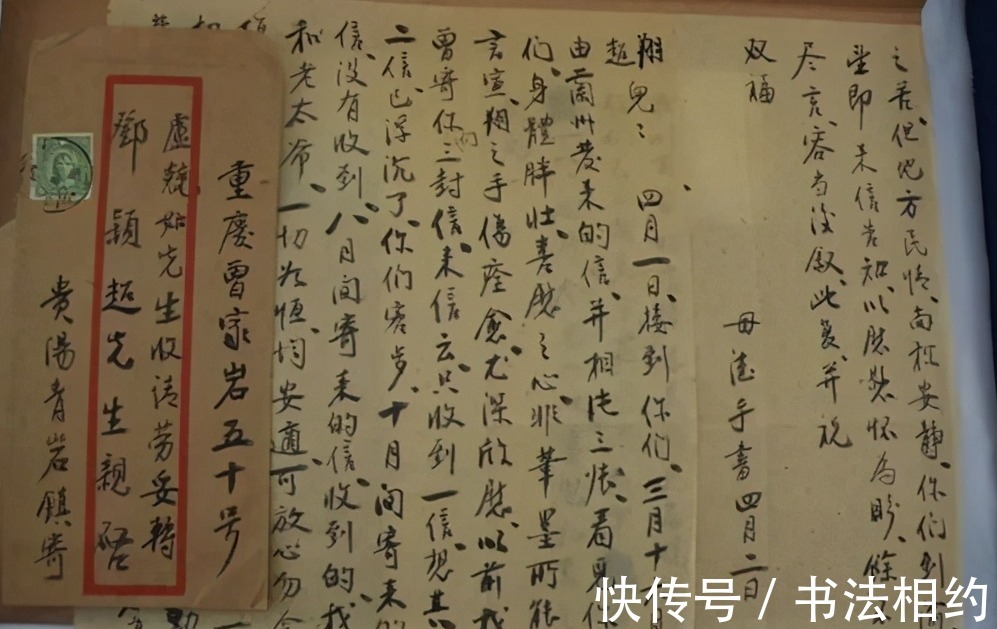 之苦、但地方民情、尚極安靜、你们到
望即来信告知、以慰老怀为盼、餘不
尽言、容当後敘、此复、并祝
双福
母德手書四月二日
翔超兒：四月一日、接到你们、三月十
由蘭州發来的信、并相片三张、看見你
们、身體胖壮、喜慰之心、非筆墨所能
言宣、翔之手傷痊愈、尤深欣慰、以前我
曾寄你们三封信、来信云、只收到一信、想其
二信、已浮沉了、你们客岁、十月间寄来的
信、没有收到、八月间寄来的信、收到的、我
和老太爷、一切如恒、均安適、可放心勿念
重慶曾家岩五十号
盧競如先生收请劳妥轉
鄧穎超先生親啓
貴陽青岩鎮寄
快传号 / 书法相约